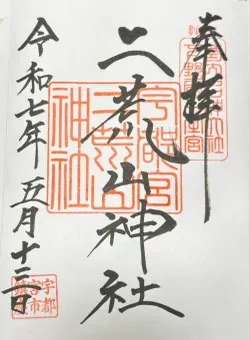 奉拝
二荒山神社
令和七年五月十三日
宇都宮
二荒山
神社
宇都
宮市